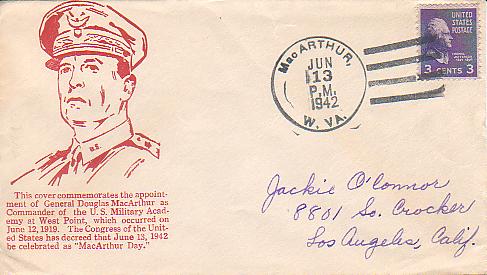 MacARTHUR,
JUN
13
P.M.
1942
W. VA.
UNITED
STATES
POSTAGE
3 CENTS 3
U.S.
This cover commemorates the appoint-
ment of General Douglas MacArthur as
Commander of the U. S. Military Acad-
emy at West Point, which occurred on
June 12, 1919. The Congress of the Unit-
ed States has decreed that June 13, 1942
be celebrated as "MacArthur Day."
Jackie O'Connor
8801 So. Crocker
Los Angeles, Calif.